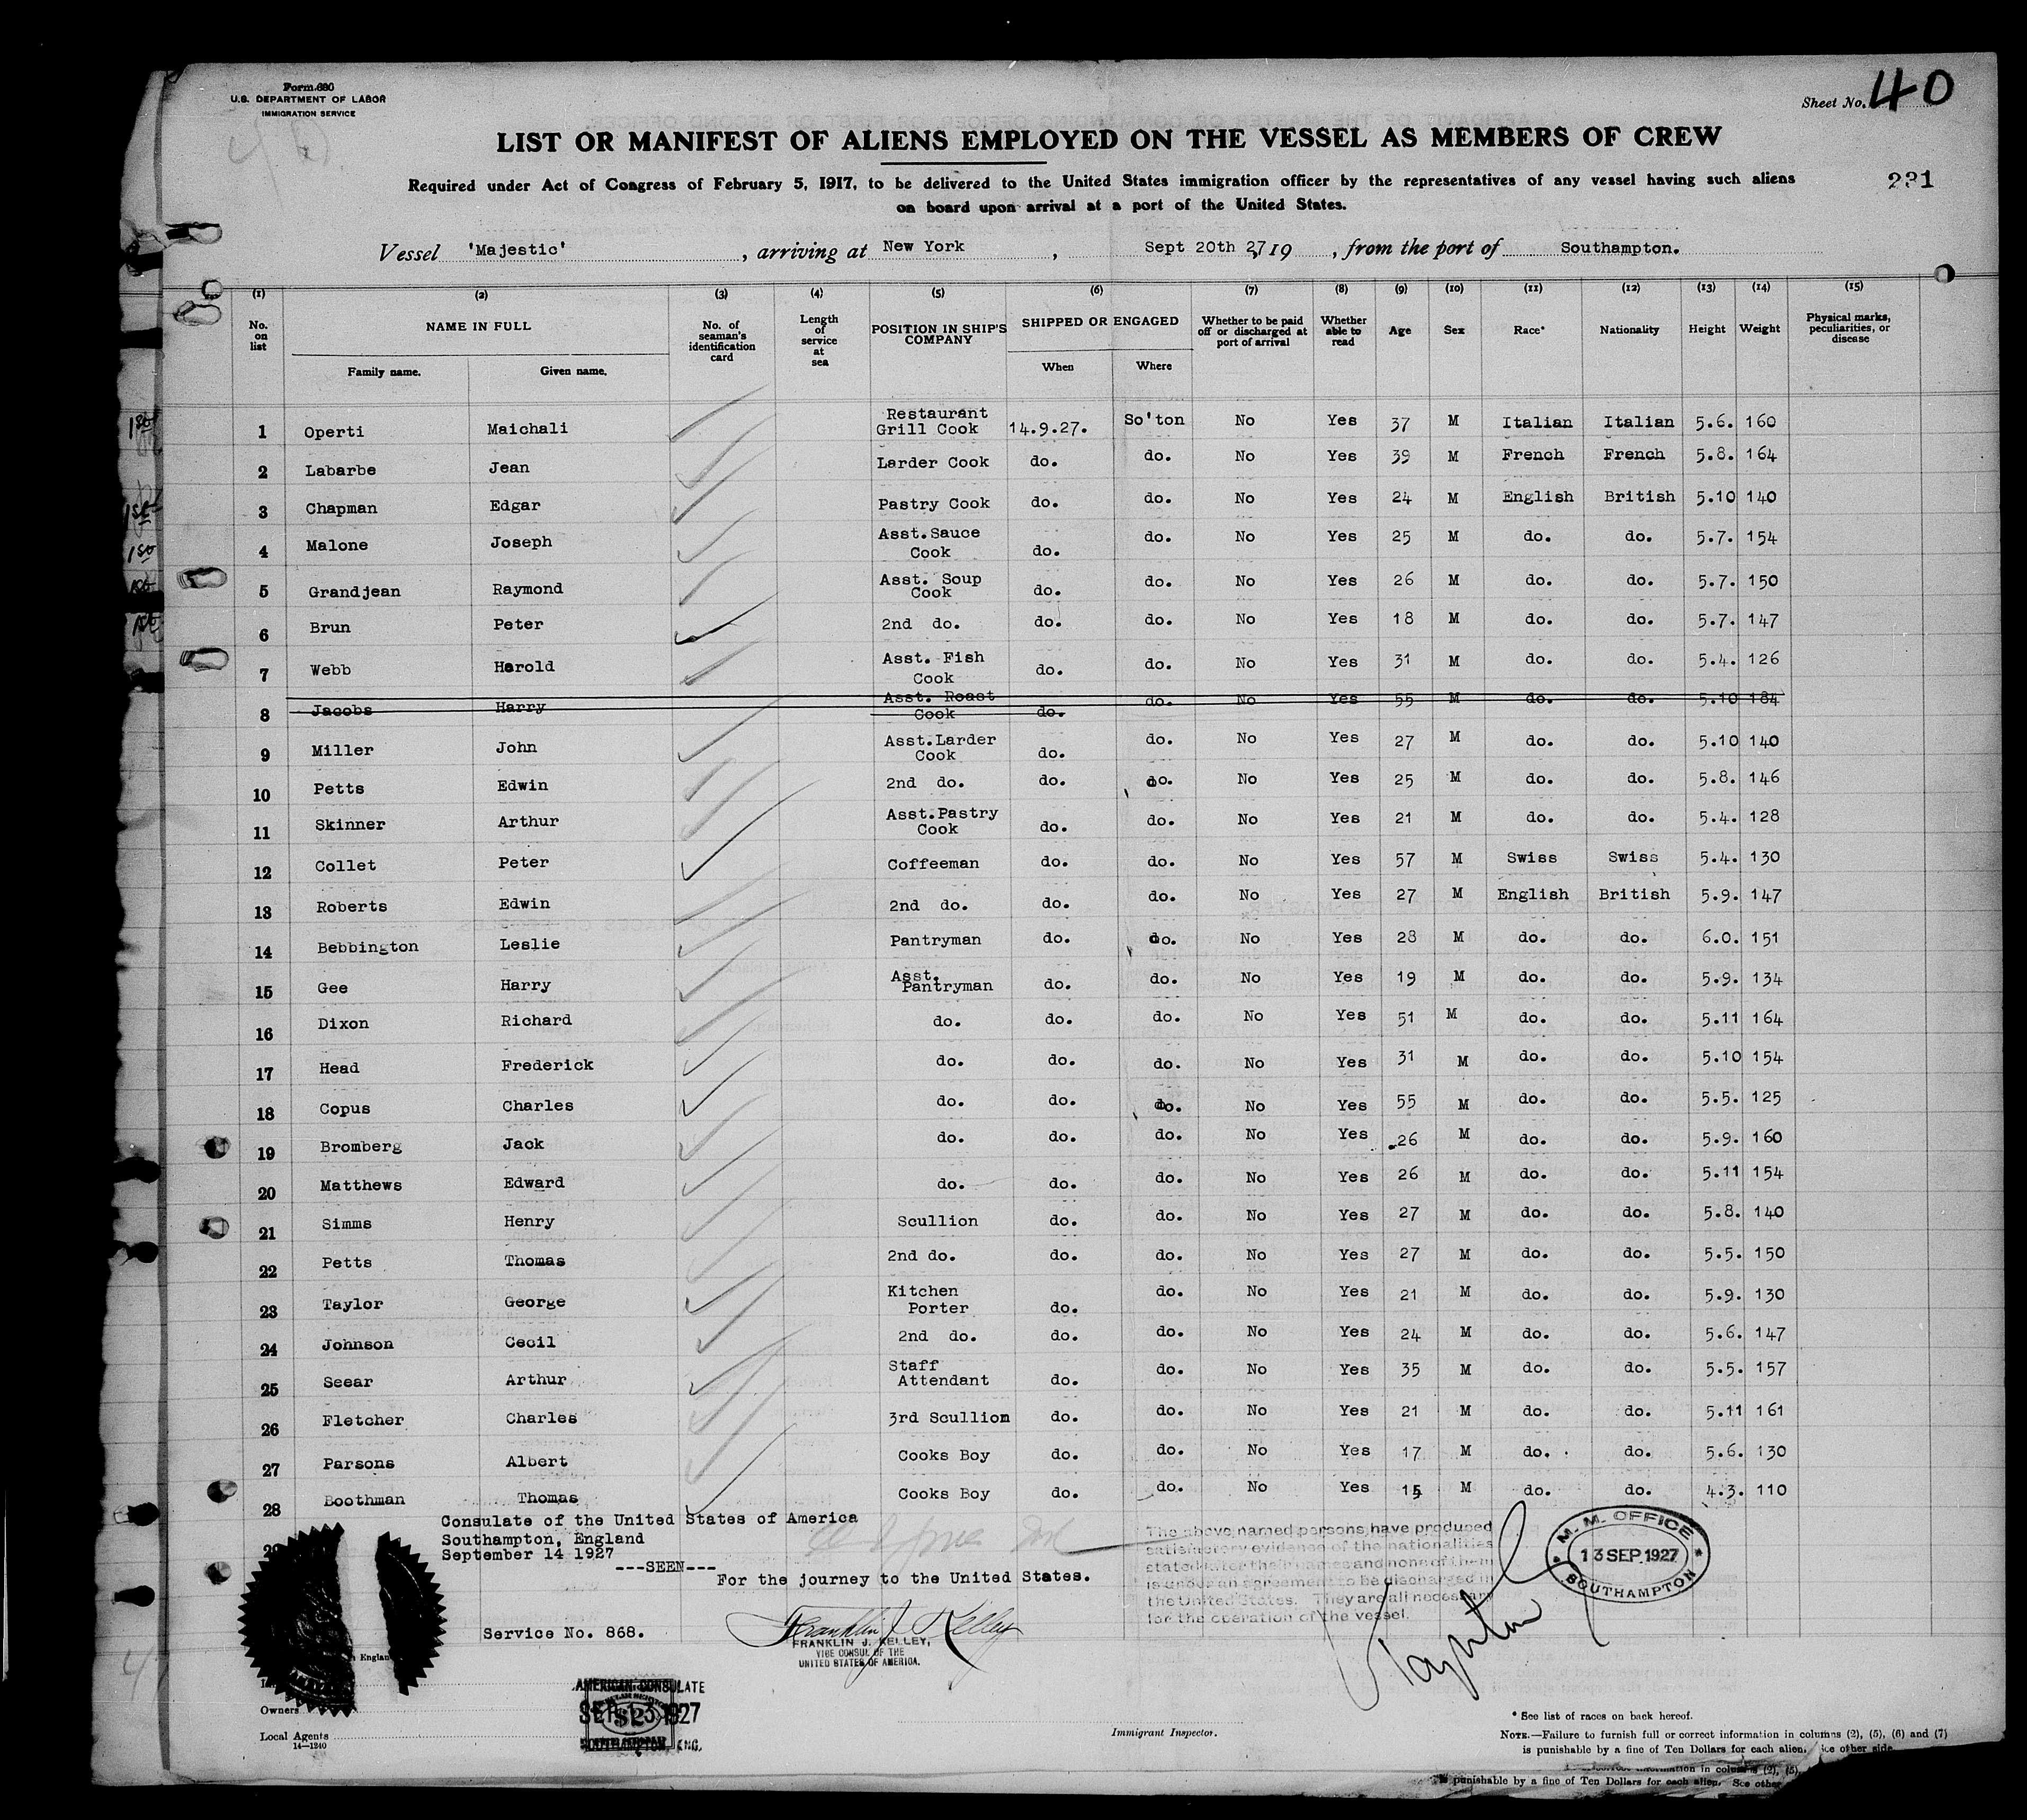 Form 680
U.S. DEPARTMENT OF LABOR
IMMIGRATION SERVICE
Sheet No. 40
LIST OR MANIFEST OF ALIENS EMPLOYED ON THE VESSEL AS MEMBERS OF CREW
Required under Act of Congress of February 5, 1917, to be delivered to the United States immigration officer by the representatives of any vessel having such aliens
on board upon arrival at a port of the United States.
231
Vessel 'Majestic', arriving at New York, Sept 20th 27, 19, from the port of Southampton.
(1) (2) (3) (4) (5) (6) (7) (8) (9) (10) (11) (12) (13) (14) (15)
No. on list | NAME IN FULL | Family name. | Given name. | No. of seaman's identification card | Length of service at sea | POSITION IN SHIP'S COMPANY | SHIPPED OR ENGAGED | When | Where | Whether to be paid off or discharged at port of arrival | Whether able to read | Age | Sex | Race* | Nationality | Height | Weight | Physical marks, peculiarities, or disease
1st 1 Operti Maichali Restaurant Grill Cook 14.9.27. So'ton No Yes 37 M Italian Italian 5.6. 160
2 Labarbe Jean Larder Cook do. do. No Yes 39 M French French 5.8. 164
1st 3 Chapman Edgar Pastry Cook do. do. No Yes 24 M English British 5.10 140
1st 4 Malone Joseph Asst.Sauce Cook do. do. No Yes 25 M do. do. 5.7. 154
1st 5 Grandjean Raymond Asst. Soup Cook do. do. No Yes 26 M do. do. 5.7. 150
1st 6 Brun Peter 2nd do. do. do. No Yes 18 M do. do. 5.7. 147
7 Webb Harold Asst. Fish Cook do. do. No Yes 31 M do. do. 5.4. 126
8 Jacobs Harry Asst. Roast Cook do. do. No Yes 55 M do. do. 5.10 184
9 Miller John Asst.Larder Cook do. do. No Yes 27 M do. do. 5.10 140
10 Petts Edwin 2nd do. do. do. No Yes 25 M do. do. 5.8. 146
11 Skinner Arthur Asst.Pastry Cook do. do. No Yes 21 M do. do. 5.4. 128
12 Collet Peter Coffeeman do. do. No Yes 57 M Swiss Swiss 5.4. 130
13 Roberts Edwin 2nd do. do. do. No Yes 27 M English British 5.9. 147
14 Bebbington Leslie Pantryman do. do. No Yes 28 M do. do. 6.0. 151
15 Gee Harry Asst. Pantryman do. do. No Yes 19 M do. do. 5.9. 134
16 Dixon Richard do. do. do. No Yes 51 M do. do. 5.11 164
17 Head Frederick do. do. do. No Yes 31 M do. do. 5.10 154
18 Copus Charles do. do. do. No Yes 55 M do. do. 5.5. 125
19 Bromberg Jack do. do. do. No Yes 26 M do. do. 5.9. 160
20 Matthews Edward do. do. do. No Yes 26 M do. do. 5.11 154
21 Simms Henry Scullion do. do. No Yes 27 M do. do. 5.8. 140
22 Petts Thomas 2nd do. do. do. No Yes 27 M do. do. 5.5. 150
23 Taylor George Kitchen Porter do. do. No Yes 21 M do. do. 5.9. 130
24 Johnson Cecil 2nd do. do. do. No Yes 24 M do. do. 5.6. 147
25 Seear Arthur Staff Attendant do. do. No Yes 35 M do. do. 5.5. 157
26 Fletcher Charles 3rd Scullion do. do. No Yes 21 M do. do. 5.11 161
27 Parsons Albert Cooks Boy do. do. No Yes 17 M do. do. 5.6. 130
28 Boothman Thomas Cooks Boy do. do. No Yes 15 M do. do. 4.3. 110
29
Consulate of the United States of America
Southampton, England
September 14 1927
---SEEN---
For the journey to the United States.
Service No. 868.
Franklin J. Kelley
FRANKLIN J. KELLEY,
VICE CONSUL OF THE
UNITED STATES OF AMERICA.
The above named persons have produced
satisfactory evidence of the nationalities
stated after their names and none of them
is under an agreement to be discharged in
the United States. They are all necessary
for the operation of the vessel.
M. M. OFFICE
13 SEP. 1927
SOUTHAMPTON
AMERICAN CONSULATE
SEP 13 1927
SOUTHAMPTON, ENG.
Owners
Local Agents
14—1240
Immigrant Inspector.
* See list of races on back hereof.
NOTE.—Failure to furnish full or correct information in columns (2), (5), (6) and (7)
is punishable by a fine of Ten Dollars for each alien. See other side.
information in columns (2), (5),
punishable by a fine of Ten Dollars for each alien. See other